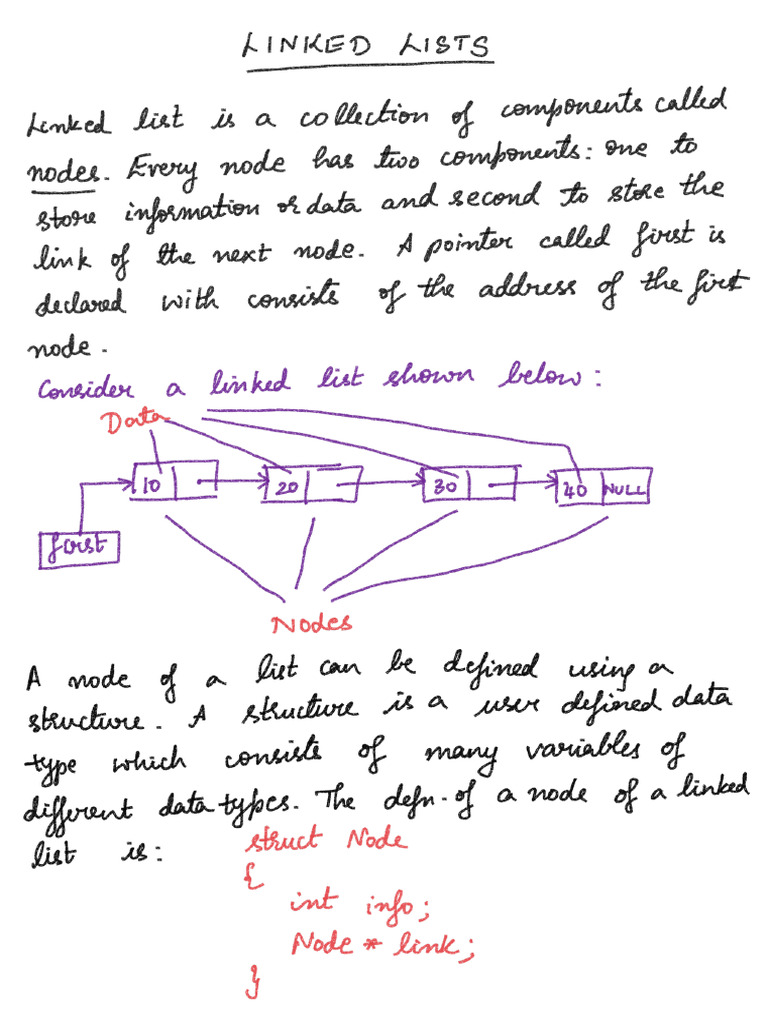 LINKED LISTS
Linked list is a collection of components called
nodes. Every node has two components: one to
store information or data and second to store the
link of the next node. A pointer called first is
declared with consists of the address of the first
node.
Consider a linked list shown below:
Data
10 20 30 40 NULL
first
Nodes
A node of a list can be defined using a
structure. A structure is a user defined data
type which consists of many variables of
different data types. The defn. of a node of a linked
list is:
struct Node
{
int info;
Node * link;
}